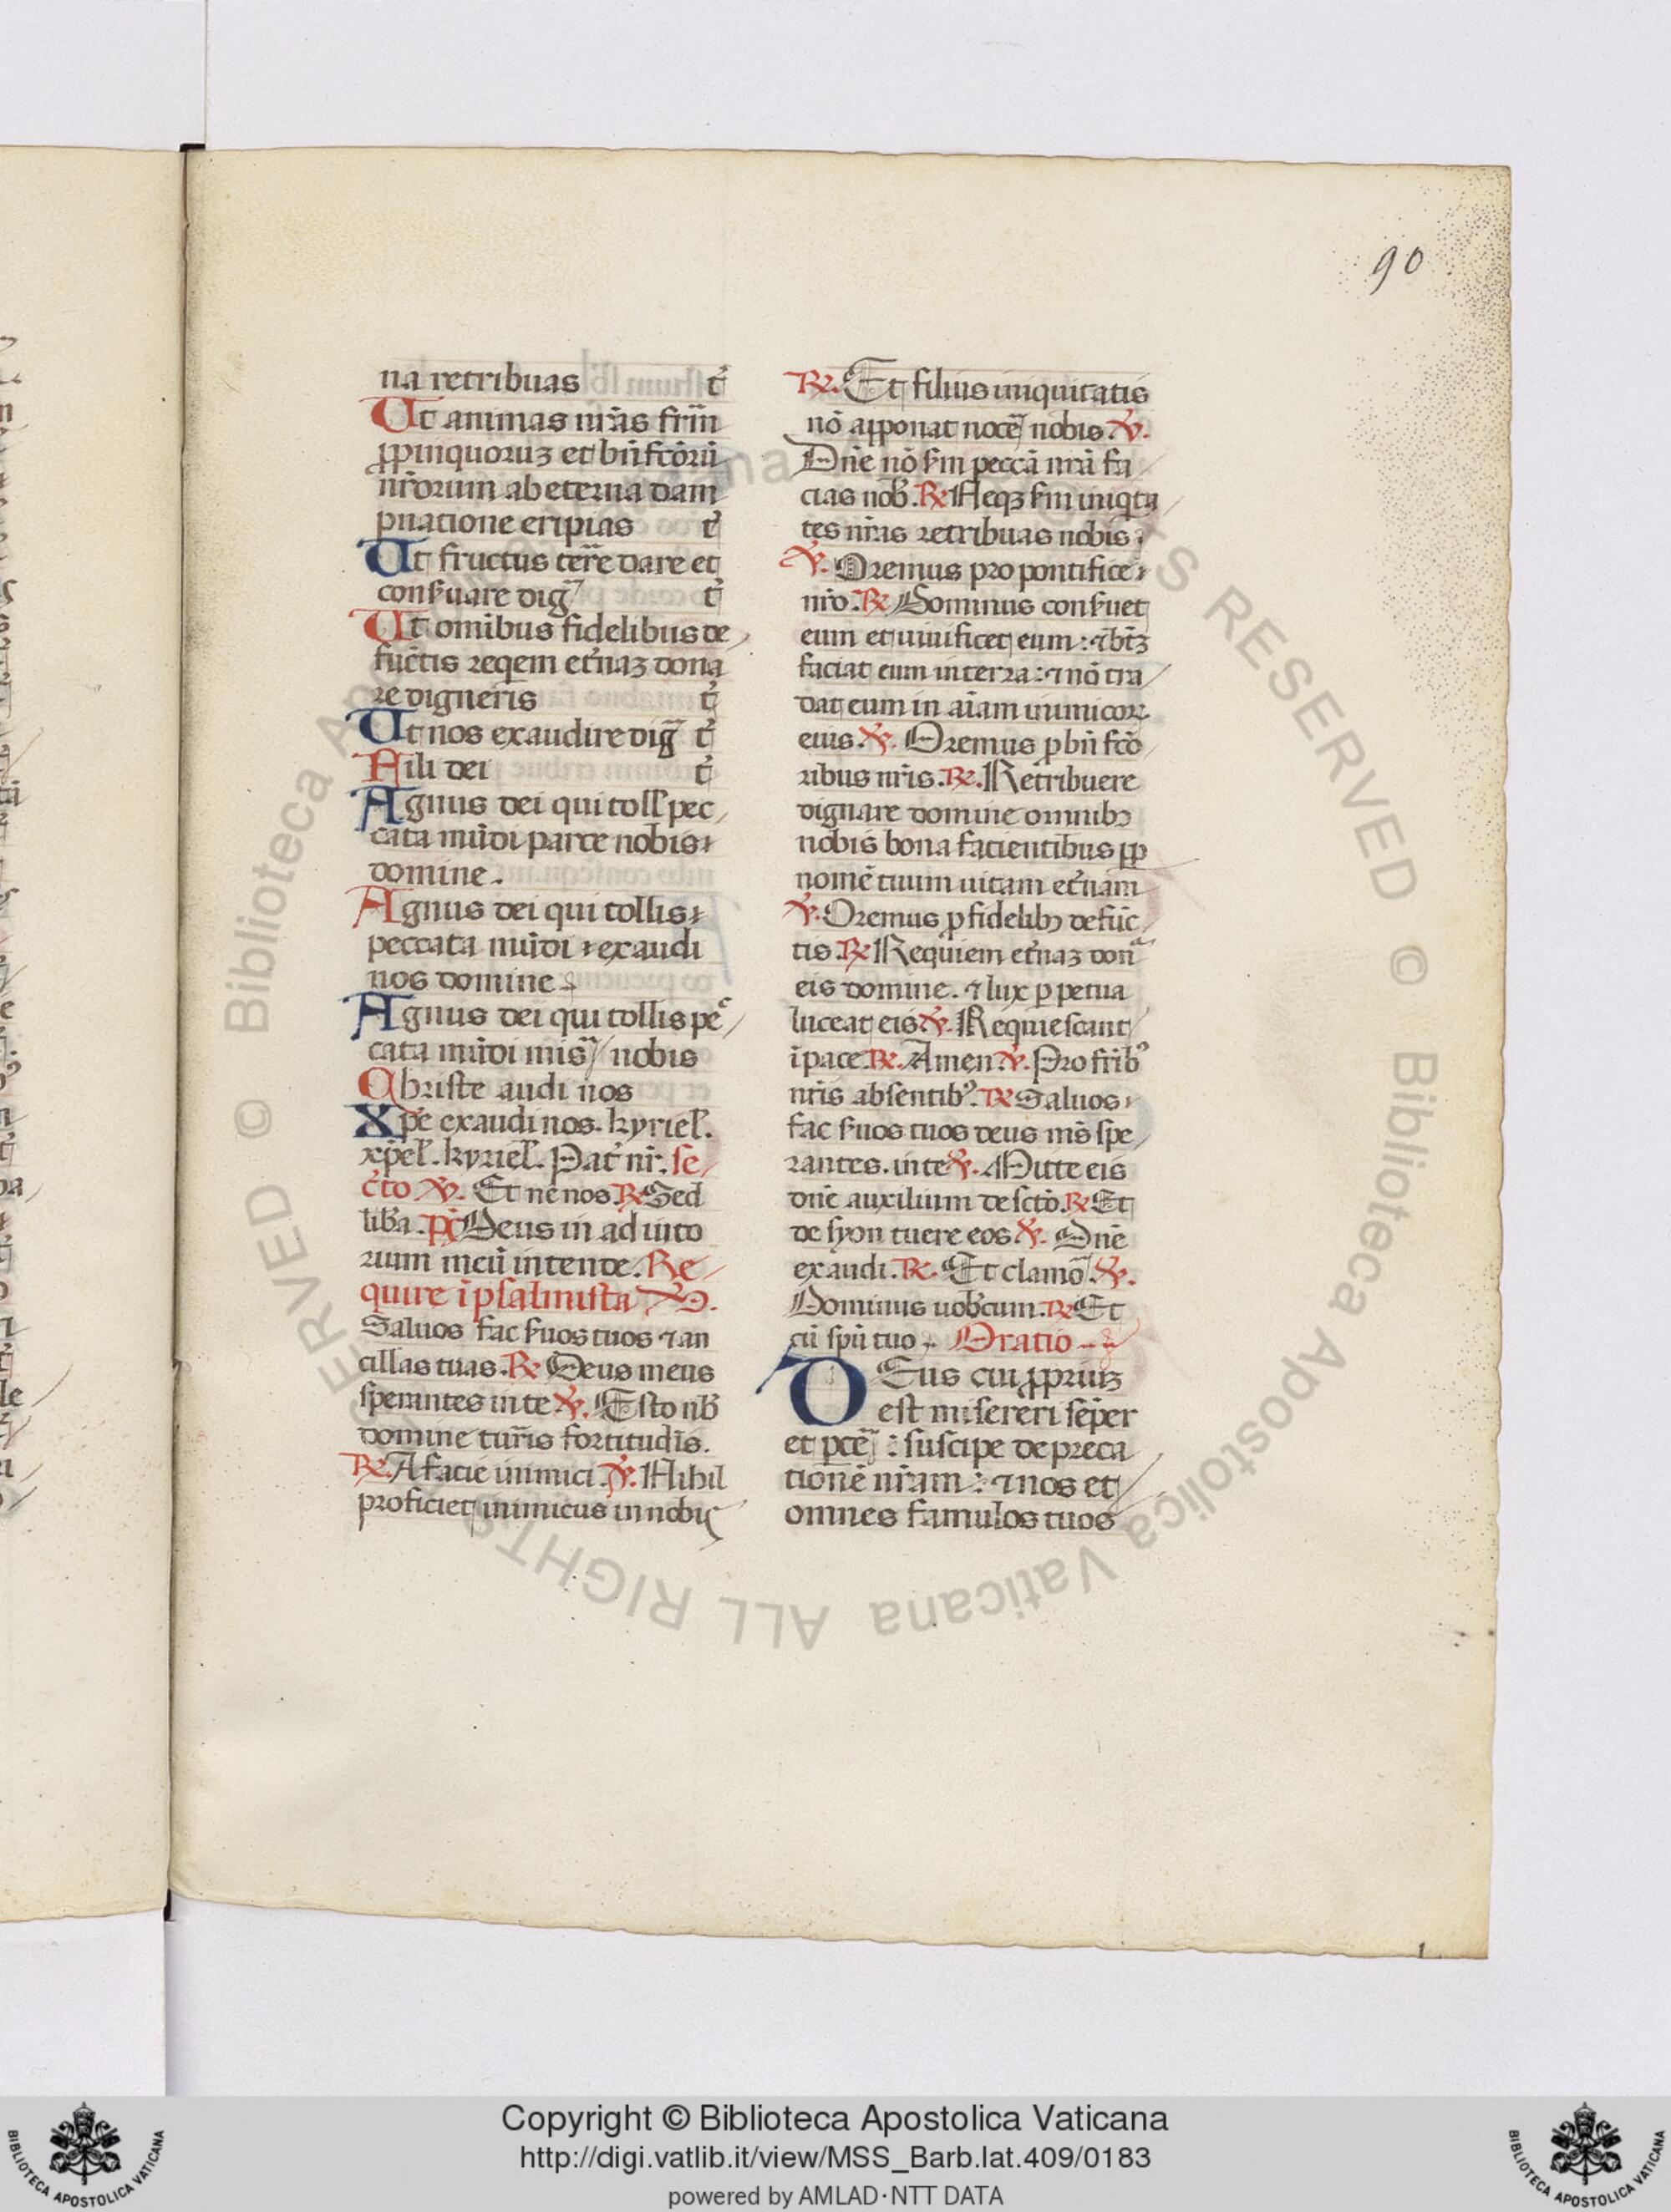 90
na retribuas t̉
Ut animas nr̄as frīn
ꝓpinquoruꝫ et bn̄fcōrū
nr̄orum ab eterna dam
pnatione eripias t̉
Ut fructus terre dare et
conẜuare dig̅ t̉
Ut omībus fidelibus de
fūctis reqem et̉naꝫ dona
re digneris t̉
Ut nos exaudire dig̅ t̉
Fili dei t̉
Agnus dei qui toll pec
cata mūdi parce nobis
domine.
Agnus dei qui tollis
peccata mūdi exaudi
nos domine
Agnus dei qui tollis pec
cata mūdi mis̄ nobis
Christe audi nos
Xp̄e exaudi nos. kyriel̄.
xp̄el̄. kyriel̄. Pat̉ nr̄. se
c̉to ℣. Et ne nos ℟ Sed
lib̉a. p̄s Deus in adiuto
rium meū intende. Re
quire ī psalmista ℣.
Saluos fac ẜuos tuos ⁊ an
cillas tuas. ℟ Deus meus
sperantes in te ℣. Esto nb̄
domine turr̄is fortitudīs.
℟. A facie inimici. ℣. Nihil
proficiet inimicus in nobis
℟. Et filius iniquitatis
nō apponat nocē nobis. ℣.
Dn̄e nō ẜm peccā nr̄a fa
cias nob̄. ℟ Neqꝫ ẜm iniqta
tes nr̄as retribuas nobis
℣. Oremus pro pontifice
nr̄o. ℟ Dominus conẜuet
eum et uiuificet eum: ⁊ bt̄ꝫ
faciat eum in terra: ⁊ nō tra
dat eum in aīam inimicoꝝ
eius. ℣. Oremus ꝓ bn̄fcō
ribus nr̄is. ℟. Retribuere
dignare domine omnibꝫ
nobis bona facientibus ꝓp
nomē tuum uitam et̉nam
℣. Oremus ꝓ fidelibꝫ defūc
tis ℟ Requiem et̉naꝫ donᵃ
eis domine. ⁊ lux ꝑpetua
luceat eis ℣. Requiescant
ī pace ℟. Amen. ℣. Pro fr̄ibꝰ
nr̄is absentibꝰ. ℟ Saluos
fac ẜuos tuos deus ms̄ spe
rantes. in te ℣. Mitte eis
dn̄e auxilium de sctō. ℟ Et
de syon tuere eos ℣. Dn̄e
exaudi. ℟. Et clamō. ℣.
Dominus uobcum. ℟ Et
cū spū tuo. Oratio
DEus cui ꝓpriuꝫ
est misereri sēper
et pc̄e: suscipe depreca
tionē nr̄am: ⁊ nos et
omnes famulos tuos
Copyright © Biblioteca Apostolica Vaticana
http://digi.vatlib.it/view/MSS_Barb.lat.409/0183
powered by AMLAD·NTT DATA
BIBLIOTECA APOSTOLICA VATICANA
BIBLIOTECA APOSTOLICA VATICANA
© Biblioteca Apostolica Vaticana ALL RIGHTS RESERVED
© Biblioteca Apostolica Vaticana ALL RIGHTS RESERVED